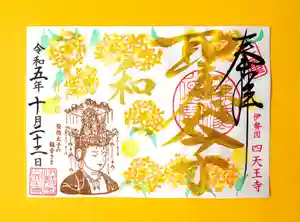 奉拝
聖徳太子
和
伊勢国 四天王寺
聖徳太子の
令和五年十月二十二日